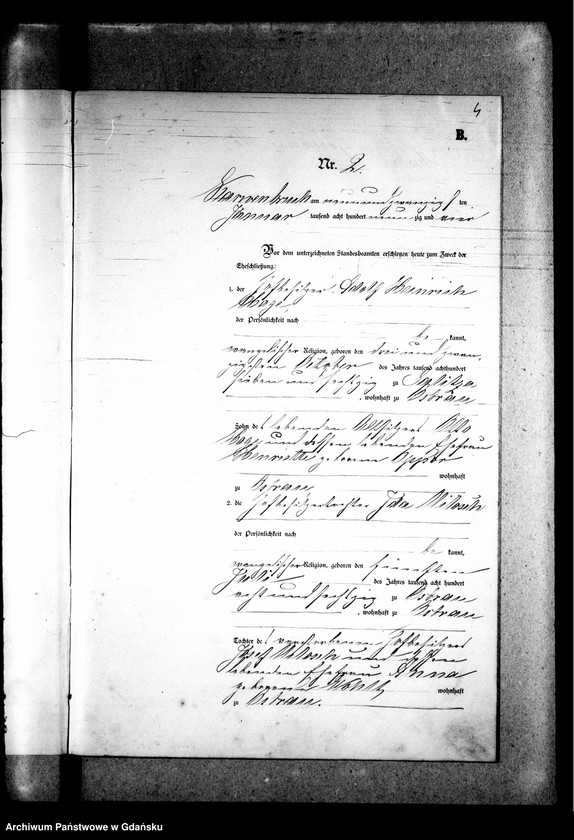 4
B.
Nr. 2.
Karwenbruch am neunundzwanzig ten
Januar tausend acht hundert neunzig und vier
Vor dem unterzeichneten Standesbeamten erschienen heute zum Zweck der
Eheschließung:
1. der Hofbesitzer Adolf Heinrich
der Persönlichkeit nach
be kannt,
evangelischer Religion, geboren den dreiundzwan-
zigsten Oktober des Jahres tausend achthundert
sieben und sechzig zu
, wohnhaft zu Ostrau
Sohn des lebenden Altsitzers Otto
und dessen lebenden Ehefrau
Henriette geborene
wohnhaft
zu Ostrau
2. die Hofbesitzertochter Ida Milosch
der Persönlichkeit nach
be kannt,
evangelischer Religion, geboren den
Juli des Jahres tausend acht hundert
acht und sechzig zu Ostrau
, wohnhaft zu Ostrau
Tochter des verstorbenen Hofbesitzers
Josef Milosch und dessen
lebenden Ehefrau Anna
geborenen wohnhaft
zu Ostrau.
Archiwum Państwowe w Gdańsku